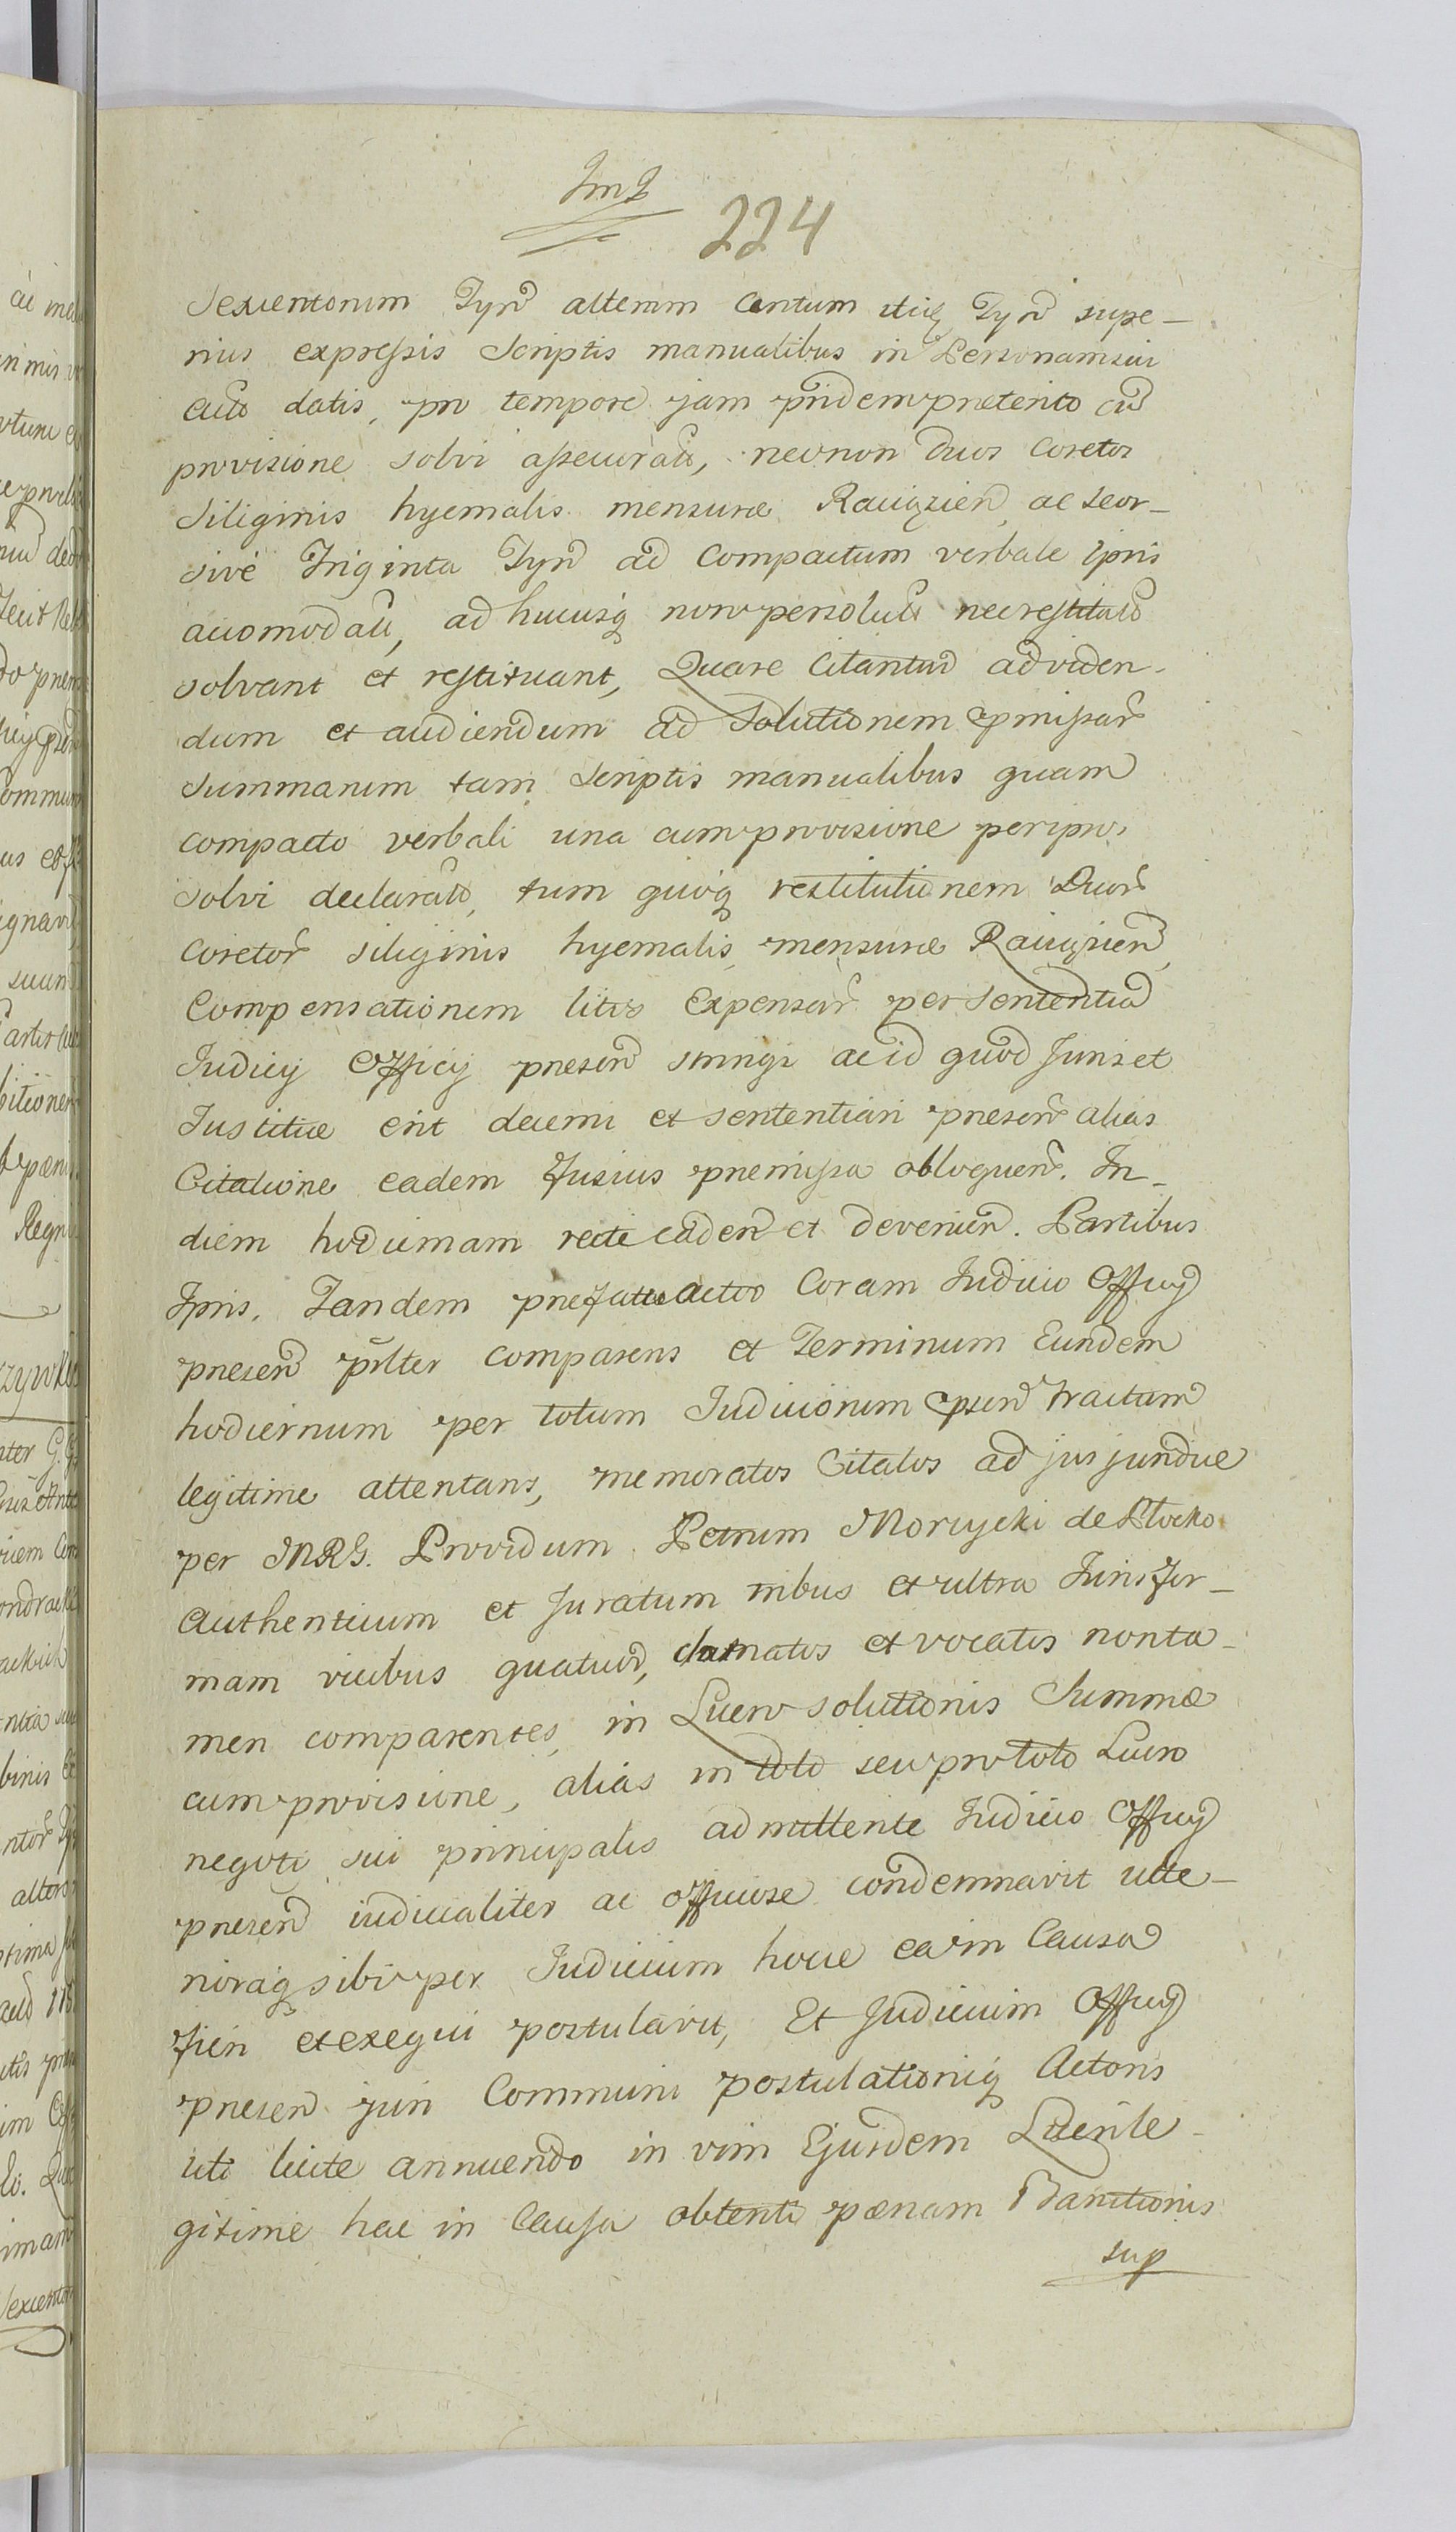 224
Sexcentorum Tyn alterum Centum itiq Tyn supe-
rius expressis Scriptis manualibus in Personam sui
datis, pro tempore jam pridem præterito cu
provisione solvi assecurat, necnon duos Coretos
Siliginis hyemalis mensuræ Ravzien ac seor-
sive Triginta Tyn ad Compactum verbale Ipris
accomodatt, ad hucusq non persolut nec restitut
solvant et restituant, Quare Citantur ad viden-
dum et audiendum ad Solutionem pmissar
Summarum tam Scriptis manualibus quam
compacto verbali una cum provisione per ipsos
solvi declarat, tum quoq restitutionem Duor
Coretor siliginis hyemalis, mensuræ Ravzien,
Compensationem litis Expensar per Sententia
Judicij Officij presen stringi ac id quod Juris et
Justitiæ erit decerni et sententiari presen alias
Citatione eadem fusius premissa obloquen. In
diem hodiernam recte caden et devenien. Partibus
Ipris. Tandem prefatus actor Coram Judicio Officij
presen plter comparens et Terminum Eundem
hodiernum per totum Judiciorum psen tractum
legitime attentans, memoratos Citatos ad jus jundue
per MRG. Providum Petrum Morzycki de Plocko
Authenticum et Juratum tribus et ultra Juris for-
mam vicibus quatuor, clamatos et vocatos non ta-
men comparentes, in Lucro solutionis Summæ
cum provisione, alias in toto seu pro toto Lucro
negotij sui principalis admittente Judicio Officij
presen iudicialiter ac officiose condemnavit ulte-
rioraq sibi per Judicium hocce ea in Causa
fieri et exequi postulavit, Et Judicium Officij
presen juri Communi postulationiq Actoris
uti licite annuendo in vim Ejusdem Lucri le-
gitime hac in Causa obtenti pœnam Banitionis
sup